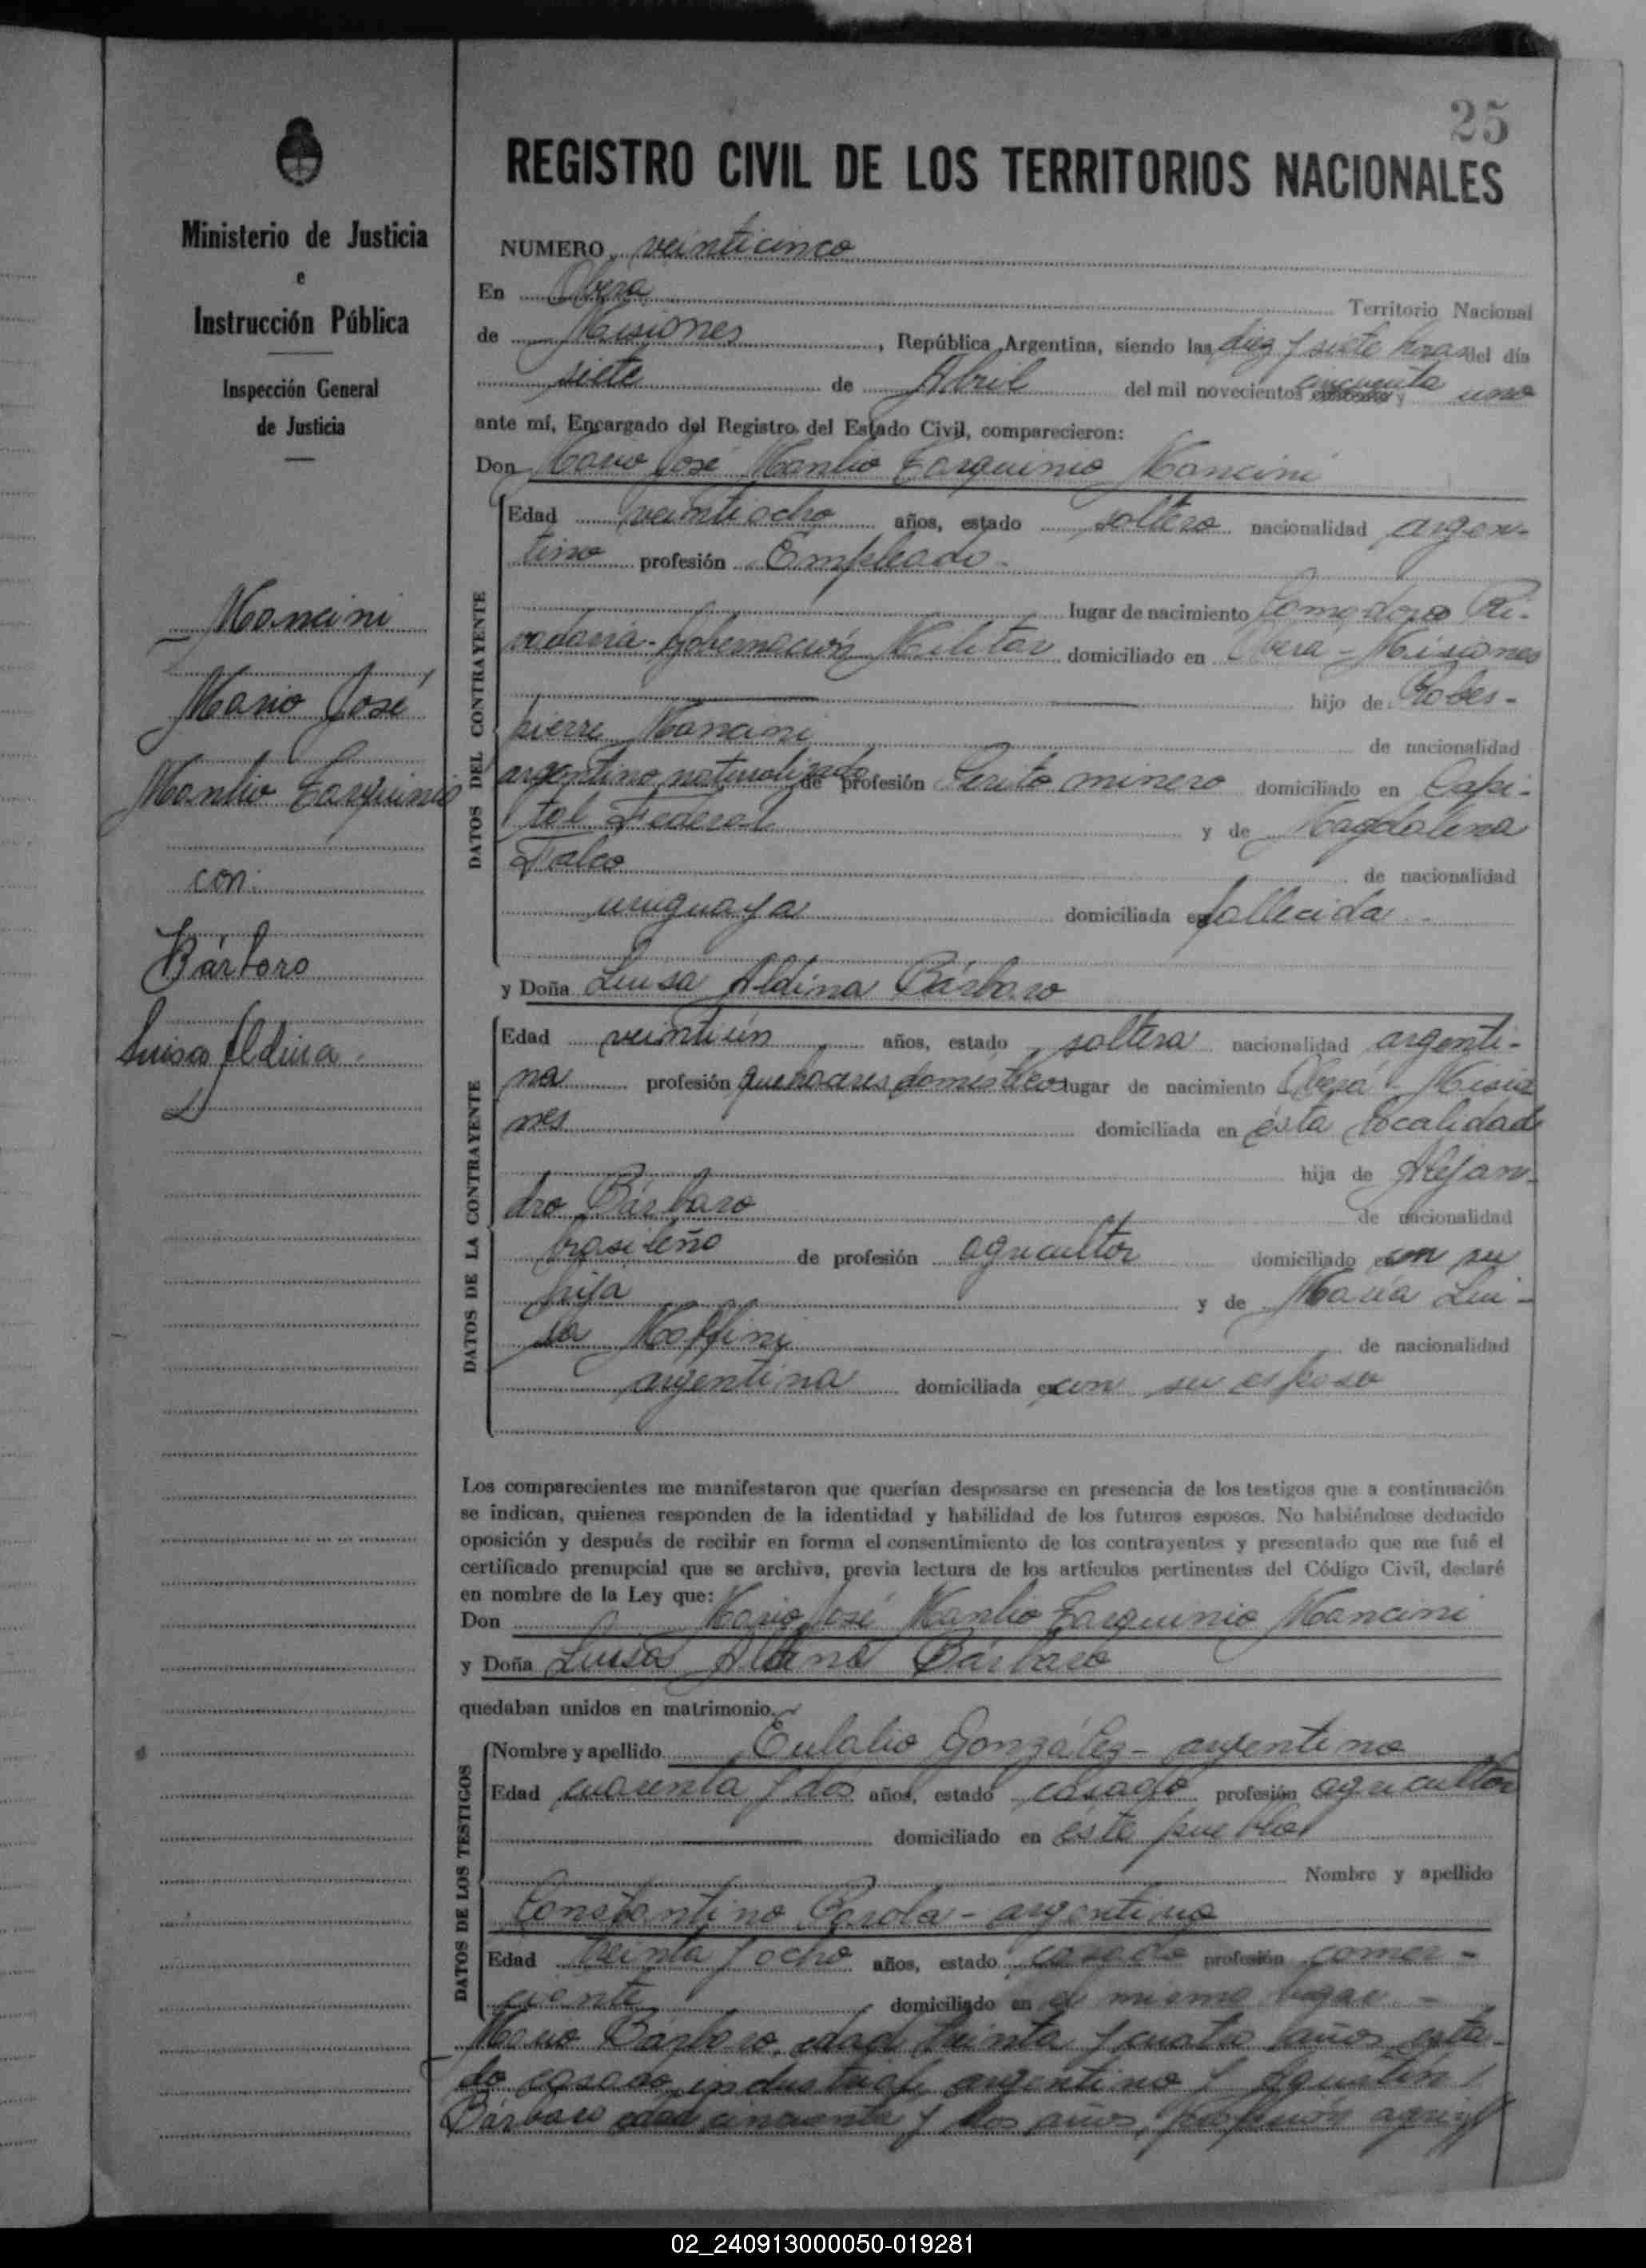 25
REGISTRO CIVIL DE LOS TERRITORIOS NACIONALES
Ministerio de Justicia
e
Instrucción Pública
Inspección General
de Justicia
Mancini
Mario José
Manlio Tarquinio
con
Bárbaro
Luisa Aldina
NUMERO veinticinco
En Oberá Territorio Nacional
de Misiones, República Argentina, siendo las diez y siete horas del día
siete de Abril del mil novecientos cincuenta y uno
ante mí, Encargado del Registro del Estado Civil, comparecieron:
Don Mario José Manlio Tarquinio Mancini
DATOS DEL CONTRAYENTE
Edad veintiocho años, estado soltero nacionalidad argen-
tino profesión Empleado-
lugar de nacimiento Comodoro Ri-
vadavia-Gobernación Militar domiciliado en Oberá-Misiones
hijo de Robes-
pierre Mancini de nacionalidad
argentino naturalizado de profesión Perito minero domiciliado en Capi-
tal Federal y de Magdalena
Falco de nacionalidad
uruguaya domiciliada en fallecida
y Doña Luisa Aldina Bárbaro
DATOS DE LA CONTRAYENTE
Edad veintiún años, estado soltera nacionalidad argenti-
na profesión quehaceres domésticos lugar de nacimiento Oberá-Misio
nes domiciliada en ésta localidad
hija de Alejan-
dro Bárbaro de nacionalidad
brasileño de profesión agricultor domiciliado en con su
hija y de María Lui-
sa Maffini de nacionalidad
argentina domiciliada en con su esposo
Los comparecientes me manifestaron que querían desposarse en presencia de los testigos que a continuación
se indican, quienes responden de la identidad y habilidad de los futuros esposos. No habiéndose deducido
oposición y después de recibir en forma el consentimiento de los contrayentes y presentado que me fué el
certificado prenupcial que se archiva, previa lectura de los artículos pertinentes del Código Civil, declaré
en nombre de la Ley que:
Don Mario José Manlio Tarquinio Mancini
y Doña Luisa Aldina Bárbaro
quedaban unidos en matrimonio.
DATOS DE LOS TESTIGOS
Nombre y apellido Eulalio González- argentino
Edad cuarenta y dos años, estado casado profesión agricultor
domiciliado en éste pueblo
Nombre y apellido
Constantino Parola- argentino
Edad treinta y ocho años, estado casado profesión comer-
ciante domiciliado en el mismo lugar-
Mario Bárbaro, edad treinta y cuatro años, esta-
do casado, industrial, argentino y Agustín
Bárbaro edad cincuenta y dos años, profesión agri-
02_240913000050-019281